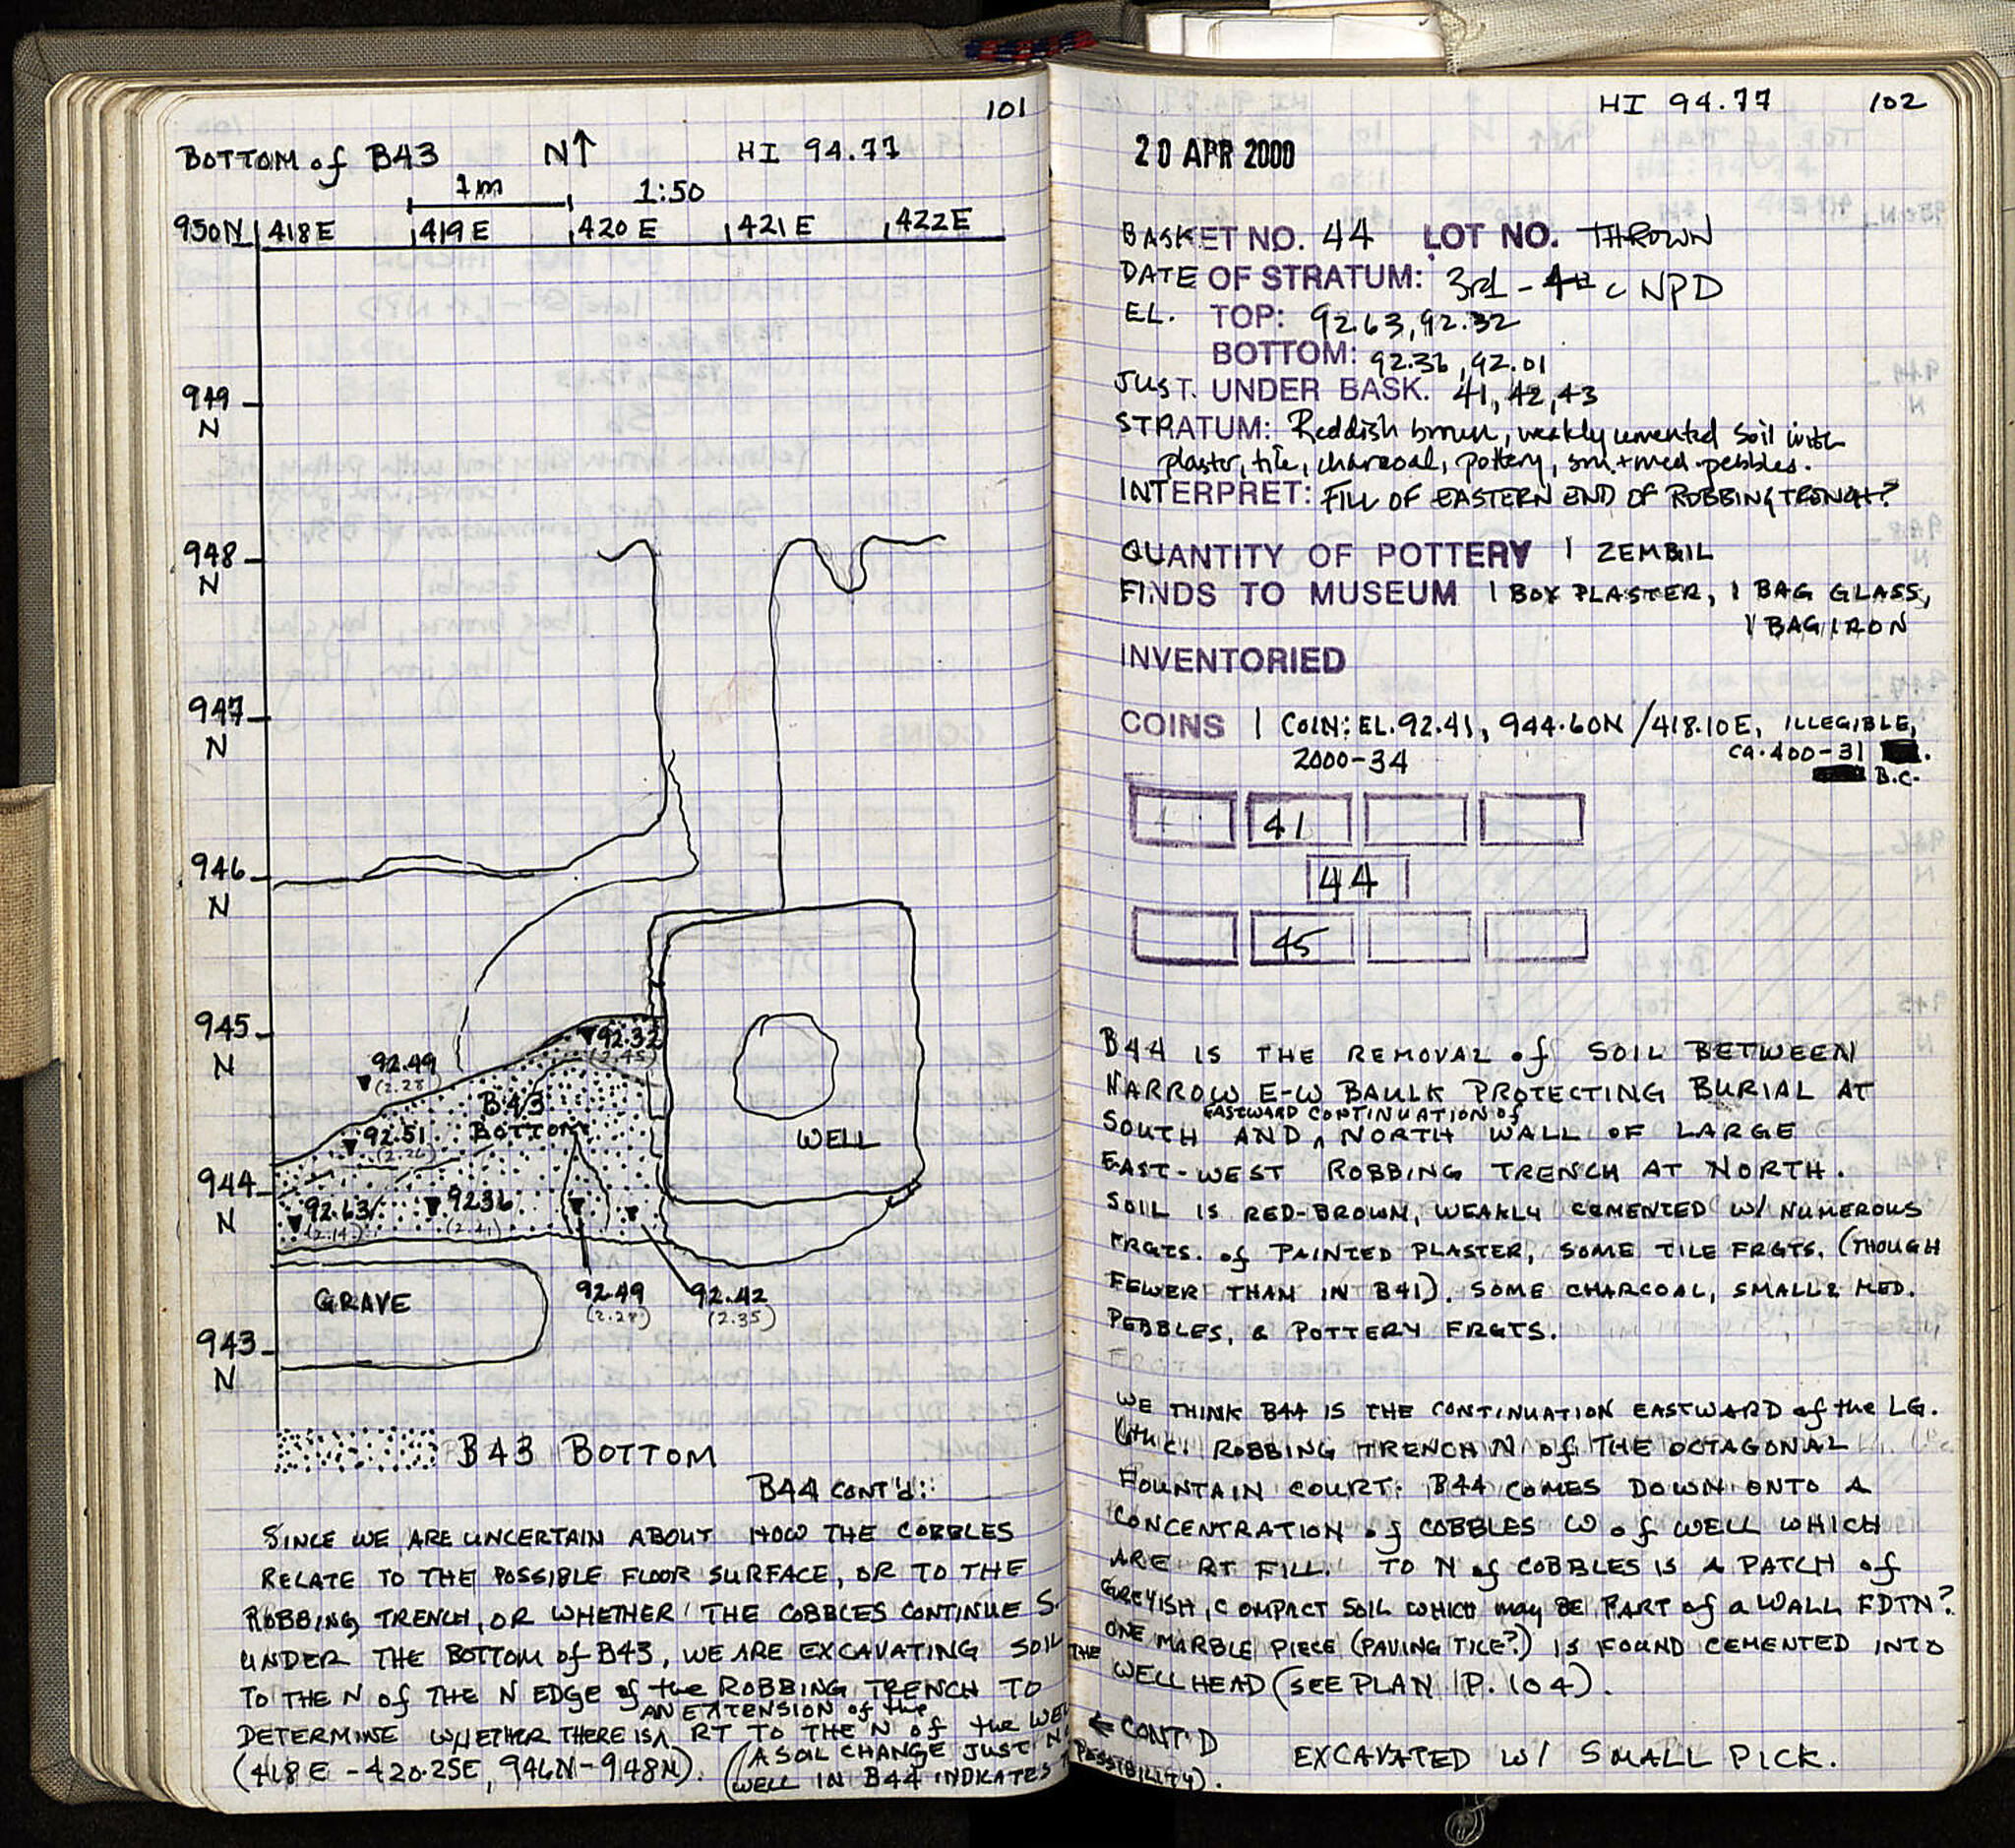 101
BOTTOM of B43 N↑ HI 94.77
1m 1:50
950N 418E 419E 420E 421E 422E
949
N
948
N
947
N
946
N
945
N
92.32
(2.45)
92.49
(2.28)
B43
BOTTOM
92.51
(2.26)
WELL
944
N
92.63
(2.14)
92.36
(2.41)
GRAVE
92.49
(2.28)
92.42
(2.35)
943
N
B43 BOTTOM
B44 CONT'd:
SINCE WE ARE UNCERTAIN ABOUT HOW THE COBBLES
RELATE TO THE POSSIBLE FLOOR SURFACE, OR TO THE
ROBBING TRENCH, OR WHETHER THE COBBLES CONTINUE S.
UNDER THE BOTTOM of B43, WE ARE EXCAVATING SOIL
TO THE N of THE N EDGE of the ROBBING TRENCH TO
AN EXTENSION of the
DETERMINE WHETHER THERE IS ∧ RT TO THE N of the WELL
(418E - 420.25E, 946N-948N). (A SOIL CHANGE JUST N
WELL IN B44 INDICATES
THE
POSSIBILITY).
HI 94.77 102
20 APR 2000
BASKET NO. 44 LOT NO. THROWN
DATE OF STRATUM: 3rd - 4th c NPD
EL. TOP: 92.63, 92.32
BOTTOM: 92.36, 92.01
JUST. UNDER BASK. 41, 42, 43
STRATUM: Reddish brown, weakly cemented soil with
plaster, tile, charcoal, pottery, sm. + med. pebbles.
INTERPRET: FILL OF EASTERN END OF ROBBING TRENCH?
QUANTITY OF POTTERY 1 ZEMBIL
FINDS TO MUSEUM 1 BOX PLASTER, 1 BAG GLASS,
1 BAG IRON
INVENTORIED
COINS 1 COIN: EL. 92.41, 944.60N/418.10E, ILLEGIBLE,
2000-34 ca. 400-31
B.C.
41
44
45
B44 IS THE REMOVAL of SOIL BETWEEN
NARROW E-W BAULK PROTECTING BURIAL AT
EASTWARD CONTINUATION of
SOUTH AND ∧ NORTH WALL OF LARGE
EAST-WEST ROBBING TRENCH AT NORTH.
SOIL IS RED-BROWN, WEAKLY CEMENTED W/ NUMEROUS
FRGTS. of PAINTED PLASTER, SOME TILE FRGTS. (THOUGH
FEWER THAN IN B41), SOME CHARCOAL, SMALL & MED.
PEBBLES, & POTTERY FRGTS.
WE THINK B44 IS THE CONTINUATION EASTWARD of the LG.
ROBBING TRENCH N of THE OCTAGONAL
FOUNTAIN COURT. B44 COMES DOWN ONTO A
CONCENTRATION of COBBLES W of WELL WHICH
ARE RT FILL. TO N of COBBLES IS A PATCH of
GREYISH, COMPACT SOIL WHICH may BE PART of a WALL FDTN?
ONE MARBLE PIECE (PAVING TILE?) IS FOUND CEMENTED INTO
WELL HEAD (SEE PLAN P. 104).
← CONT'D
EXCAVATED W/ SMALL PICK.